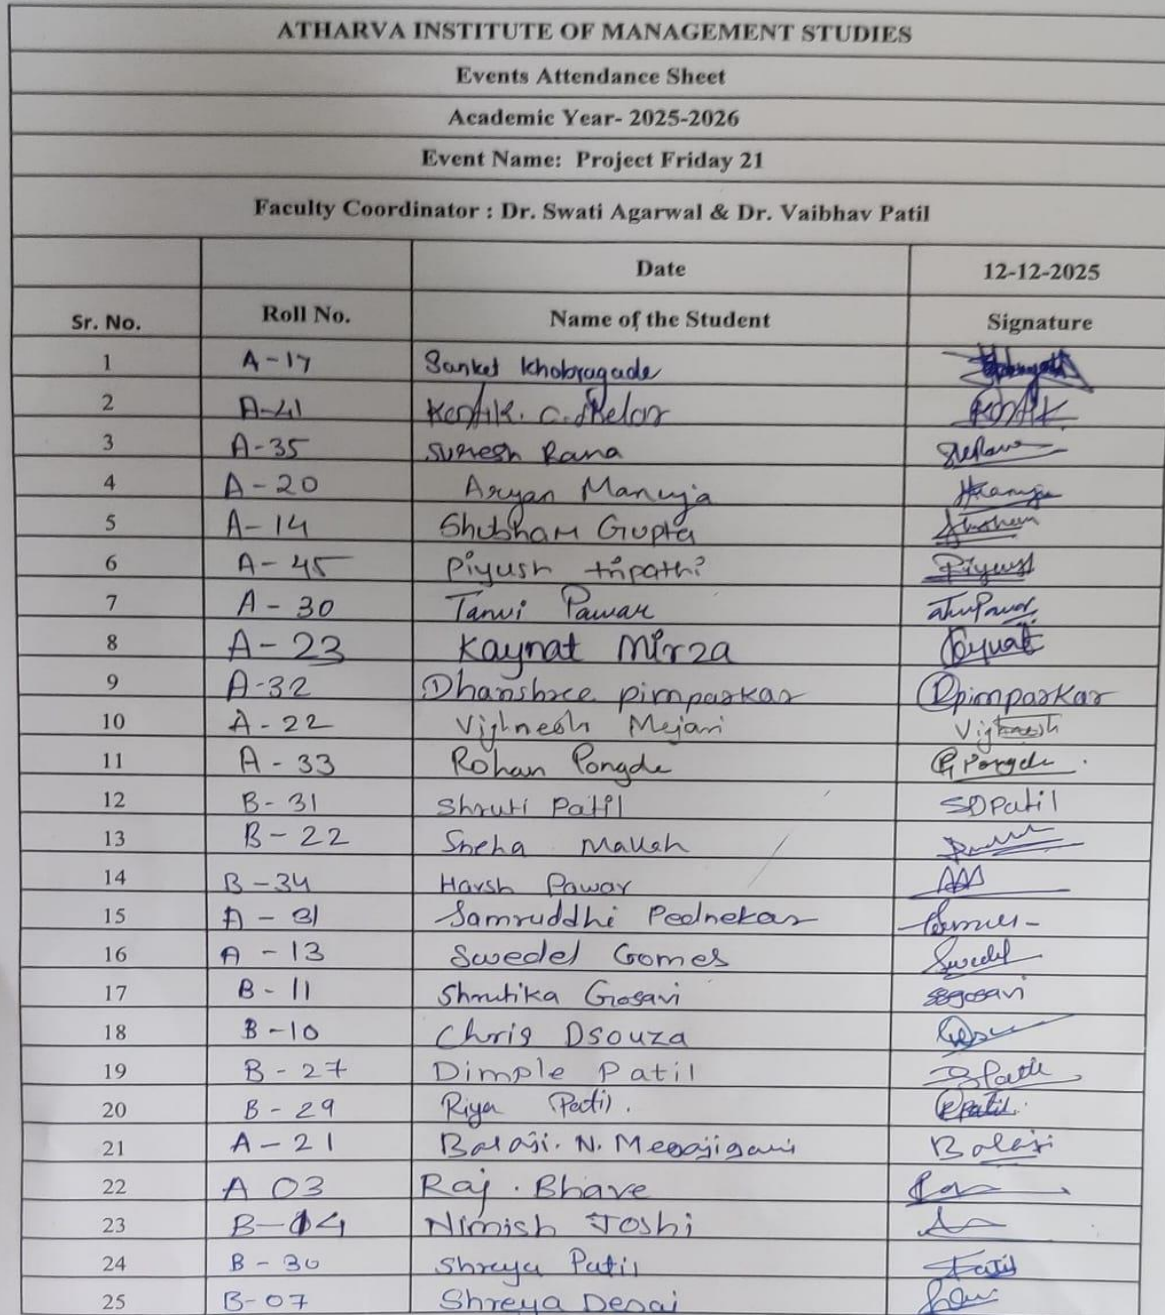 ATHARVA INSTITUTE OF MANAGEMENT STUDIES
Events Attendance Sheet
Academic Year- 2025-2026
Event Name: Project Friday 21
Faculty Coordinator : Dr. Swati Agarwal & Dr. Vaibhav Patil
Date 12-12-2025
Sr. No. Roll No. Name of the Student Signature
1 A-17 Sanket Khobragade
2 A-41 C.
3 A-35 Suresh Rana
4 A-20 Aryan Manuja
5 A-14 Shubham Gupta
6 A-45 Piyush tripathi Piyush
7 A-30 Tanvi Pawar
8 A-23 Kaynat Mirza
9 A-32 Dhanshree pimparkar Dpimparkar
10 A-22 Vighnesh Mejari
11 A-33 Rohan Pongde R Pongde.
12 B-31 Shruti Patil SDPatil
13 B-22 Sneha
14 B-34 Harsh Pawar
15 A-31 Samruddhi Pednekar
16 A-13 Swedel Gomes Swedel
17 B-11 Shrutika Gosavi ssgosavi
18 B-10 Chris Dsouza
19 B-27 Dimple Patil
20 B-29 Riya Patil. RPatil.
21 A-21 Balaji. N. Balaji
22 A 03 Raj. Bhave
23 B-04 Nimish Joshi
24 B-30 Shreya Patil
25 B-07 Shreya Desai